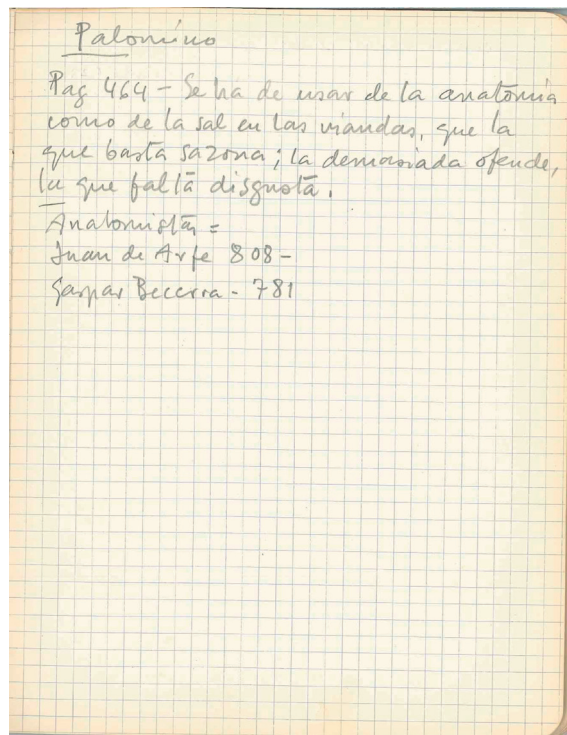 Palomino
Pag 464 - Se ha de usar de la anatomia
como de la sal en las viandas, que la
que basta sazona; la demasiada ofende,
la que falta disgusta.
Anatomista =
Juan de Arfe 808 -
Gaspar Becerra - 781